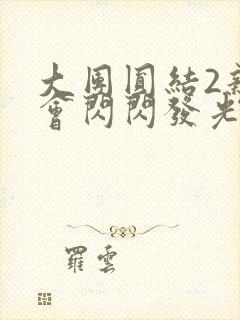 大團圓結2新
會閃閃發光
羅雲